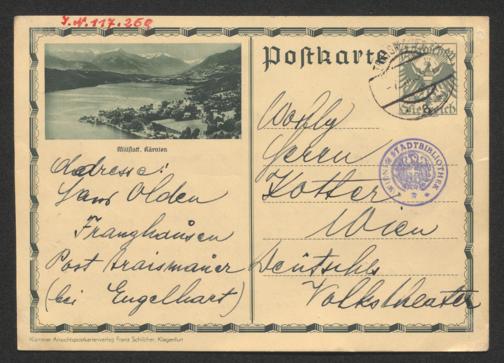 J.N. 117.260
Postkarte
Österreich
Millstatt. Kärnten
Adresse:
Hans Olden
Franzhausen
Post Traismauer
(bei Engelhart)
Wohlg
Herrn
Kotter
Wien
Deutsches
Volkstheater
WIENER STADTBIBLIOTHEK
Kärntner Ansichtspostkartenverlag Franz Schilcher, Klagenfurt